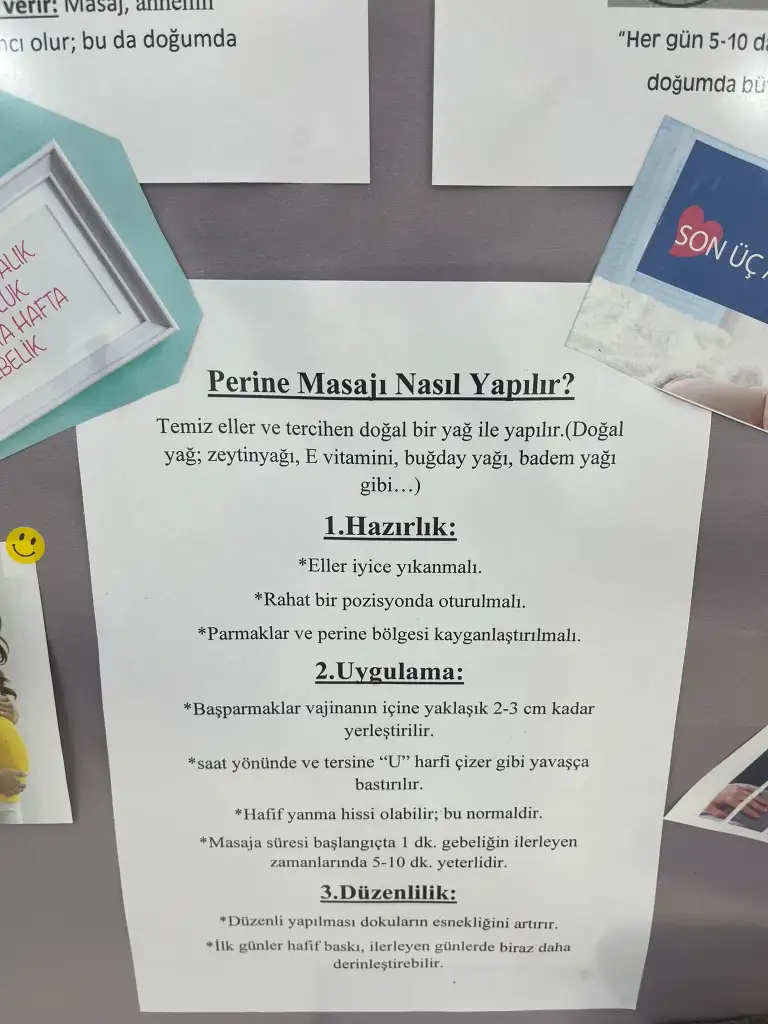 verir: Masaj, annenin
ncı olur; bu da doğumda
“Her gün 5-10
doğumda
SON ÜÇ
HAFTA
Perine Masajı Nasıl Yapılır?
Temiz eller ve tercihen doğal bir yağ ile yapılır.(Doğal
yağ; zeytinyağı, E vitamini, buğday yağı, badem yağı
gibi…)
1.Hazırlık:
*Eller iyice yıkanmalı.
*Rahat bir pozisyonda oturulmalı.
*Parmaklar ve perine bölgesi kayganlaştırılmalı.
2.Uygulama:
*Başparmaklar vajinanın içine yaklaşık 2-3 cm kadar
yerleştirilir.
*saat yönünde ve tersine “U” harfi çizer gibi yavaşça
bastırılır.
*Hafif yanma hissi olabilir; bu normaldir.
*Masaja süresi başlangıçta 1 dk. gebeliğin ilerleyen
zamanlarında 5-10 dk. yeterlidir.
3.Düzenlilik:
*Düzenli yapılması dokuların esnekliğini artırır.
*İlk günler hafif baskı, ilerleyen günlerde biraz daha
derinleştirebilir.